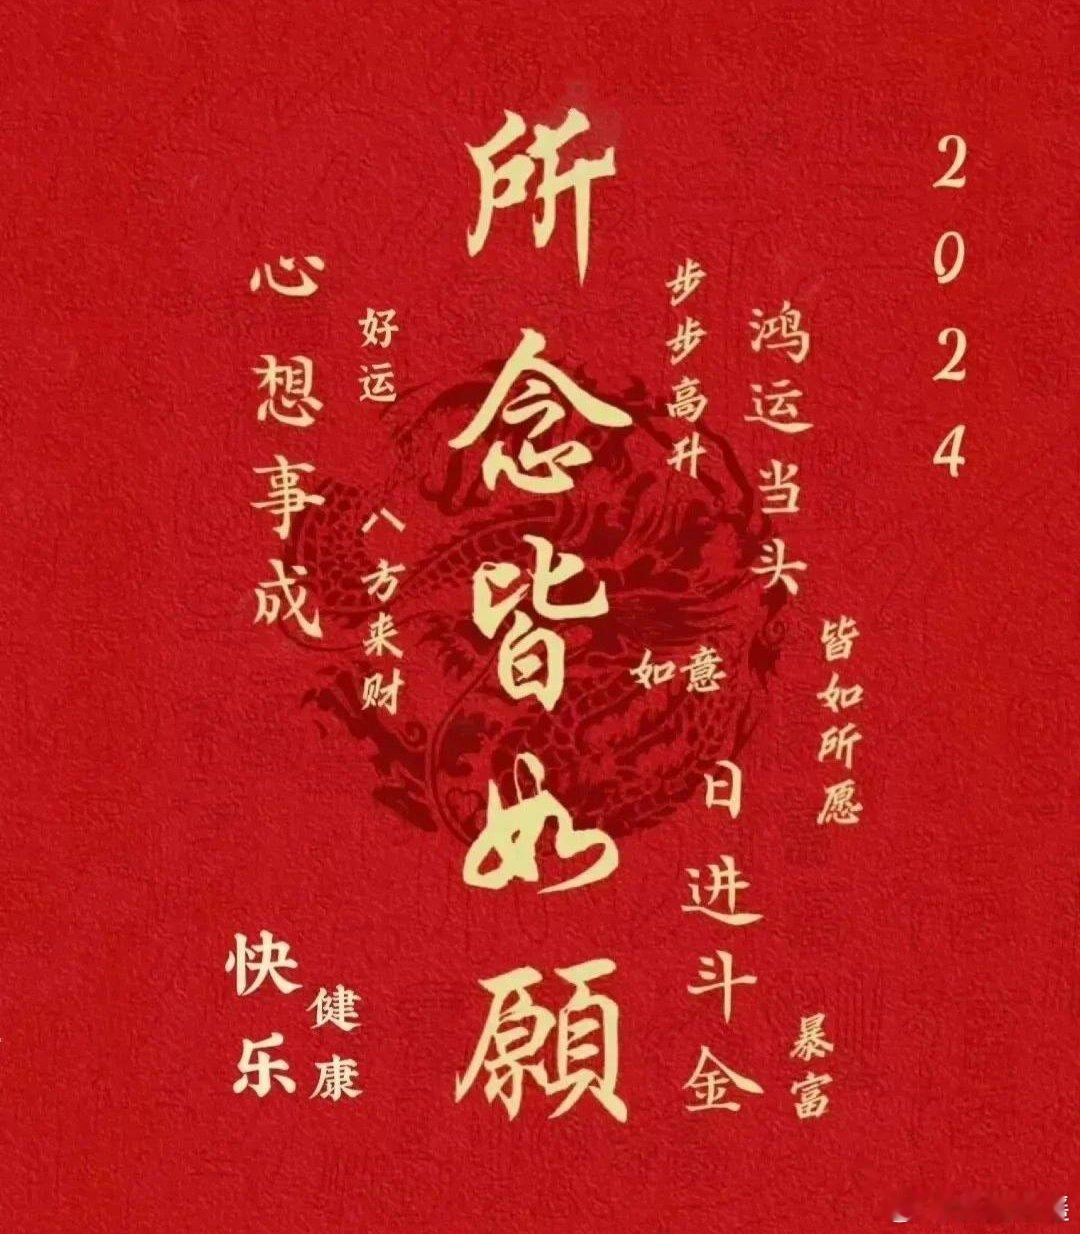 2024
所念皆如願
鸿运当头
步步高升
皆如所愿
如意
日进斗金
暴富
好运
八方来财
心想事成
健康
快乐